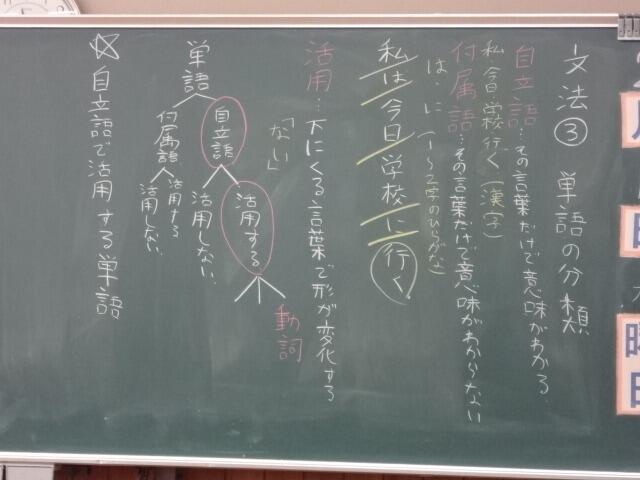 文法③ 単語の分類
自立語…その言葉だけで意味がわかる
私・今日・学校・行く(漢字)
付属語…その言葉だけで意味がわからない
は・に(1〜2字のひらがな)
私は今日学校に行く
活用…下にくる言葉で形が変化する
「ない」
単語
自立語
活用する
動詞
活用しない
付属語
活用する
活用しない
☆自立語で活用する単語